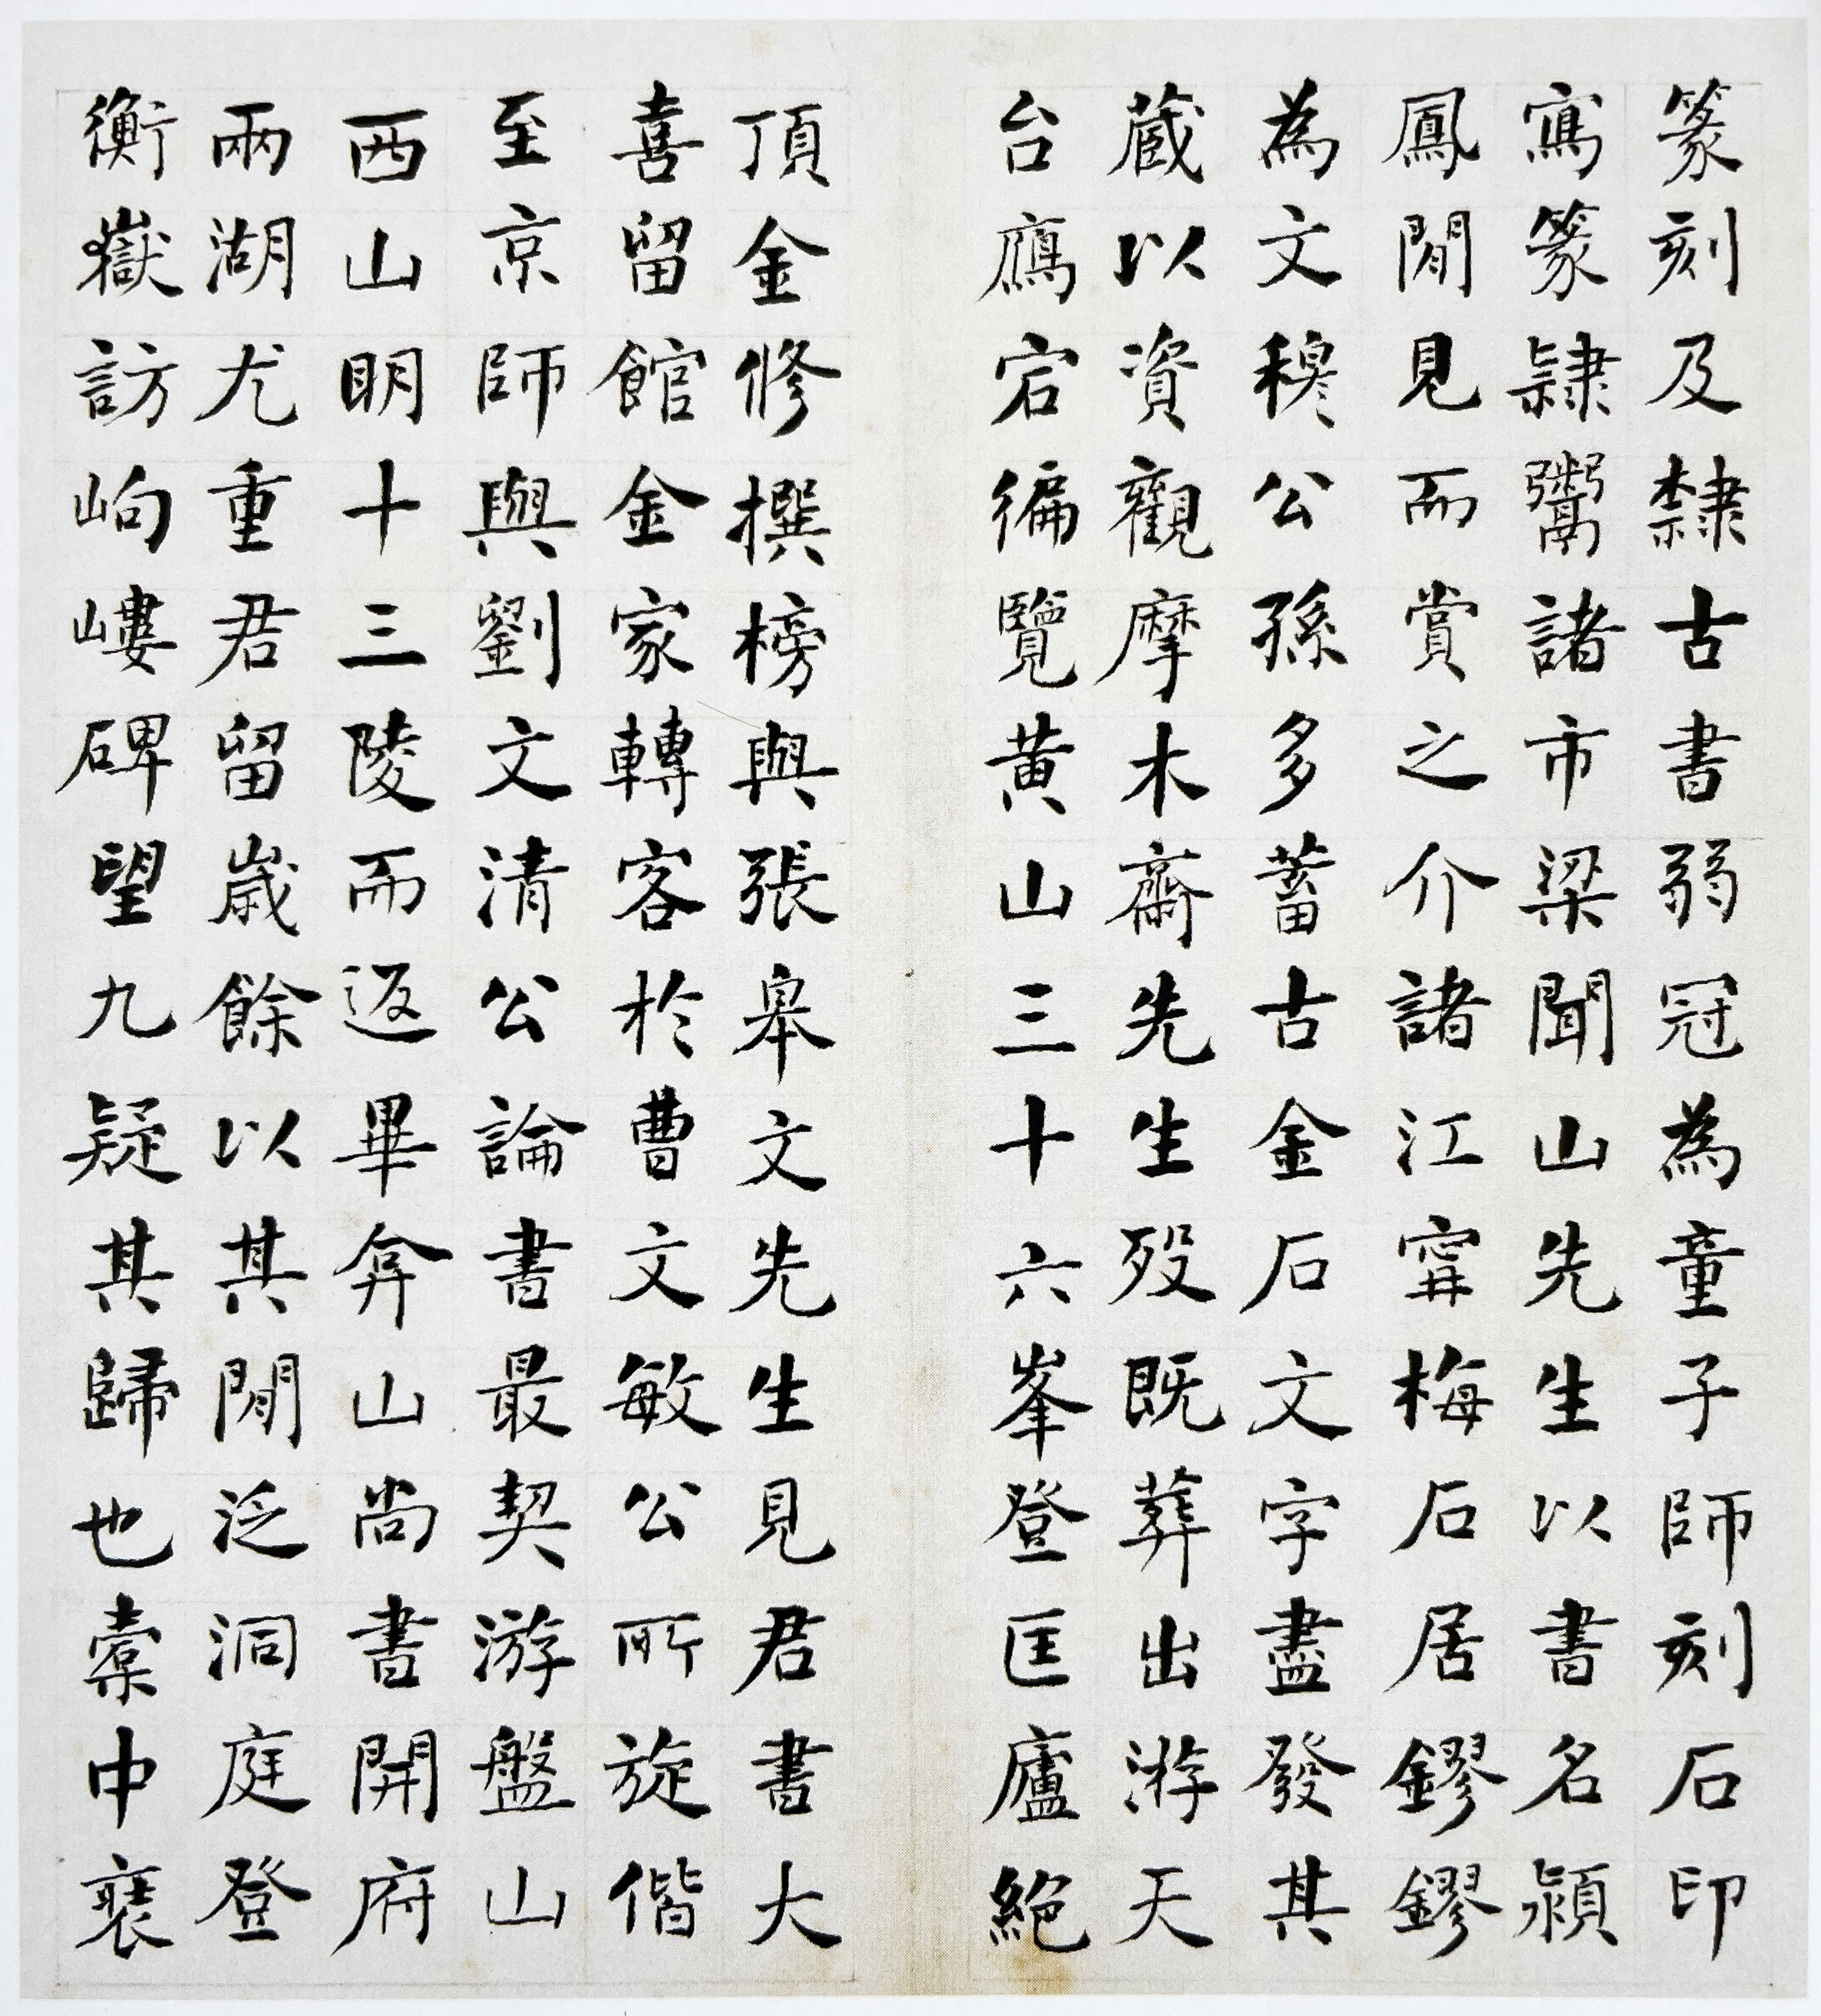 篆刻及隸古書弱冠為童子師刻石印
寫篆隸鬻諸市梁聞山先生以書名潁
鳳閒見而賞之介諸江甯梅石居鏐鏐
為文穆公孫多蓄古金石文字盡發其
藏以資觀摩木齋先生歿既葬出游天
台鴈宕徧覽黃山三十六峯登匡廬絕
頂金修撰榜與張皋文先生見君書大
喜留館金家轉客於曹文敏公所旋偕
至京師與劉文清公論書最契游盤山
西山明十三陵而返畢弇山尚書開府
兩湖尤重君留歲餘以其閒泛洞庭登
衡嶽訪岣嶁碑望九疑其歸也橐中裘